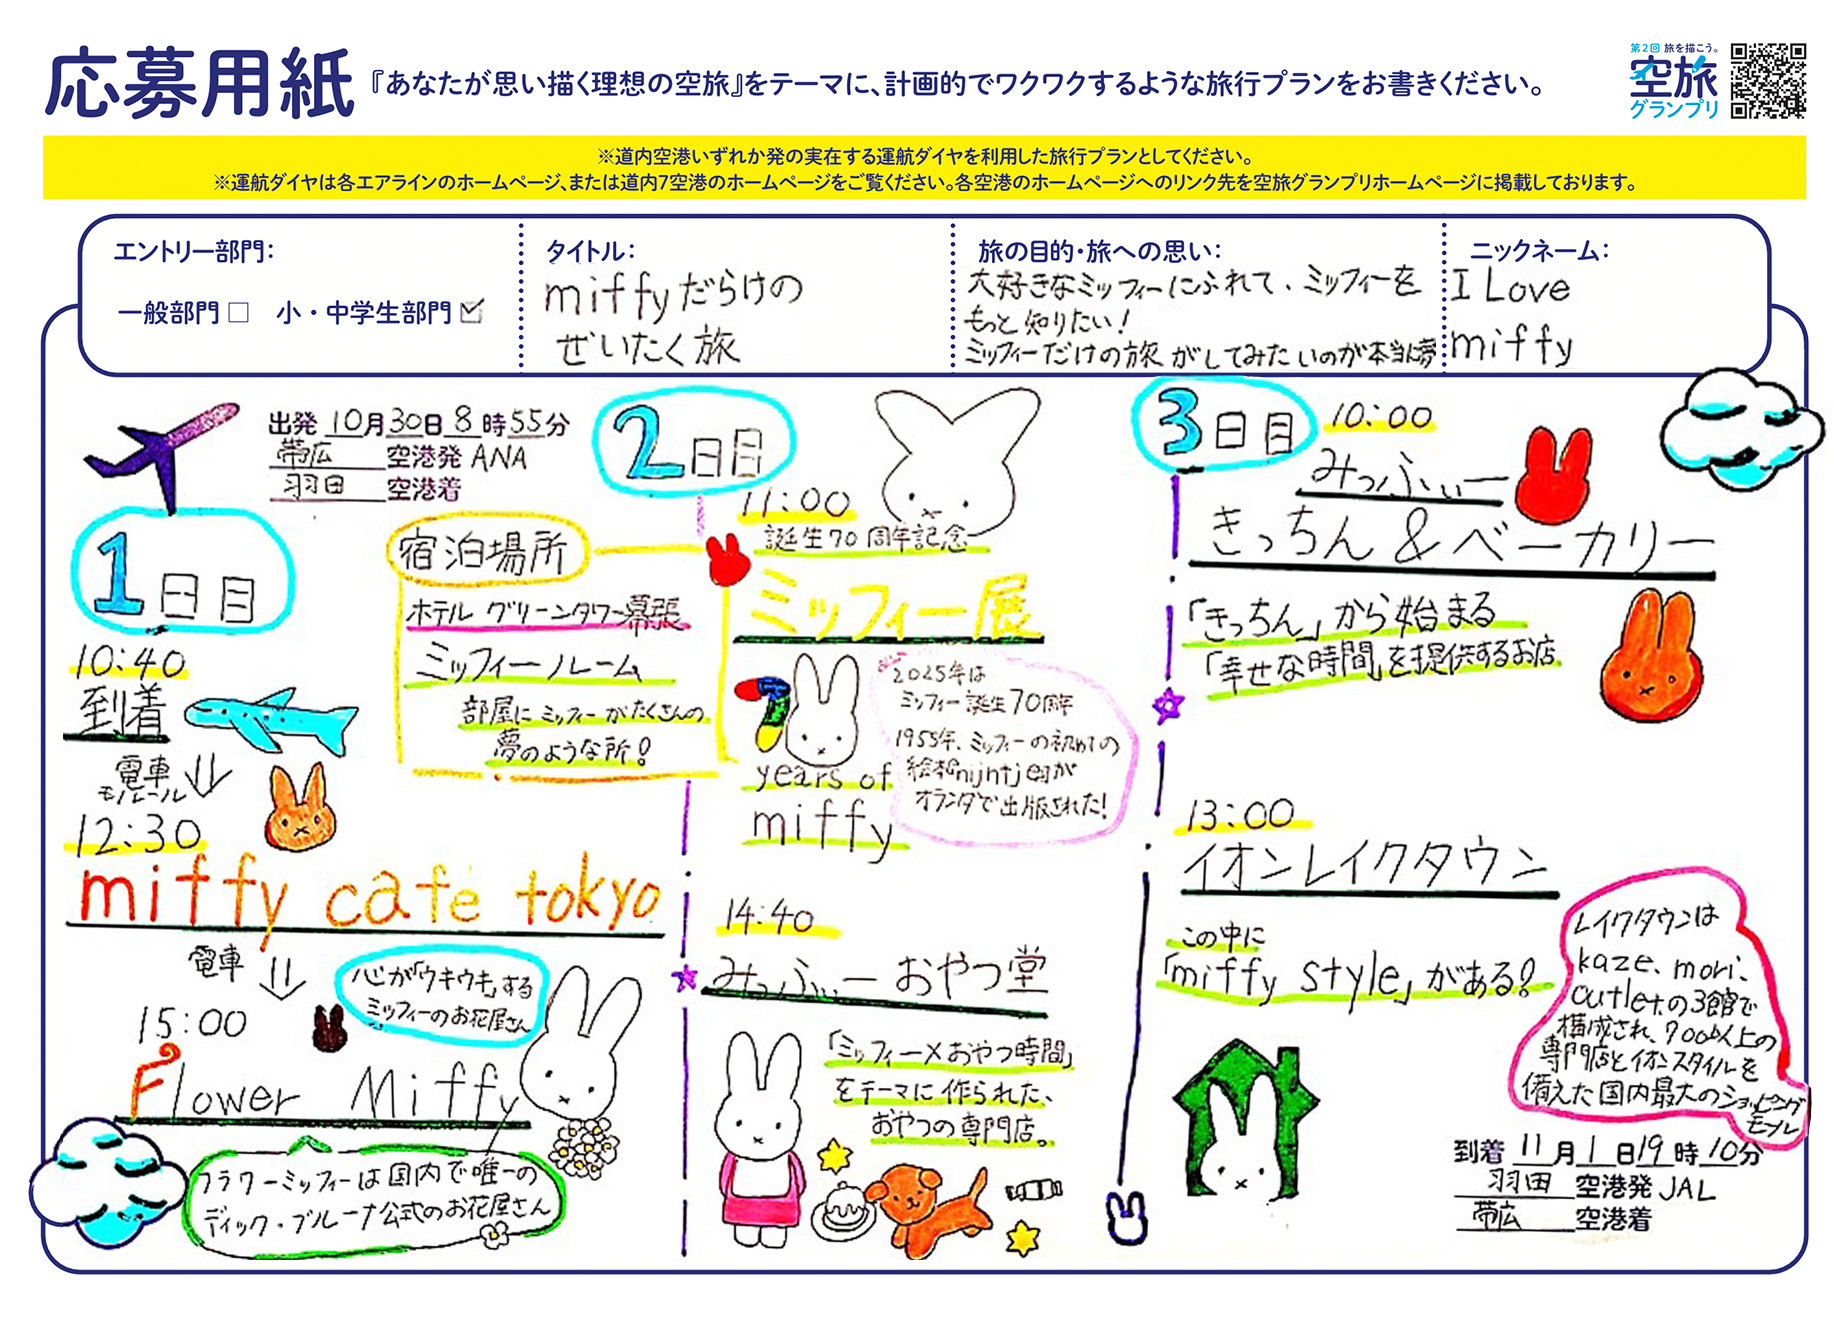 応募用紙
『あなたが思い描く理想の空旅』をテーマに、計画的でワクワクするような旅行プランをお書きください。
第2回 旅を描こう。
空旅
グランプリ
※道内空港いずれか発の実在する運航ダイヤを利用した旅行プランとしてください。
※運航ダイヤは各エアラインのホームページ、または道内7空港のホームページをご覧ください。各空港のホームページへのリンク先を空旅グランプリホームページに掲載しております。
エントリー部門:
一般部門□ 小・中学生部門☑
タイトル:
miffyだらけの
ぜいたく旅
旅の目的・旅への思い:
大好きなミッフィーにふれて、ミッフィーを
もっと知りたい!
ミッフィーだけの旅がしてみたいのが本当に夢
ニックネーム:
I Love
miffy
出発 10月30日8時55分
帯広 空港発 ANA
羽田 空港着
1日目
10:40
到着
電車
モノレール
12:30
miffy café tokyo
電車
15:00
心が「ウキウキ」する
ミッフィーのお花屋さん
Flower Miffy
フラワーミッフィーは国内で唯一の
ディック・ブルーナ公式のお花屋さん
宿泊場所
ホテル グリーンタワー幕張
ミッフィールーム
部屋にミッフィーがたくさんの
夢のような所!
2日目
11:00
誕生70周年記念
ミッフィー展
7
years of
miffy
2025年は
ミッフィー誕生70周年
1955年、ミッフィーの初めての
絵本『nijntje』が
オランダで出版された!
14:40
みっふぃーおやつ堂
「ミッフィー×おやつ時間」
をテーマに作られた、
おやつの専門店。
3日目
10:00
みっふぃー
きっちん&ベーカリー
「きっちん」から始まる
「幸せな時間」を提供するお店
13:00
イオンレイクタウン
この中に
「miffy style」がある!
レイクタウンは
kaze、mori、
outletの3館で
構成され、700以上の
専門店とイオンスタイルを
備えた国内最大のショッピング
モール
到着 11月1日19時10分
羽田 空港発 JAL
帯広 空港着